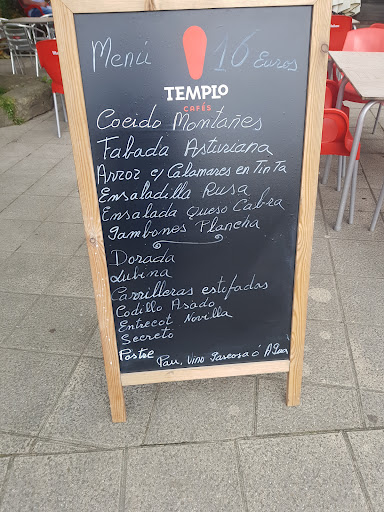 Menú 16 Euros
TEMPIO
CAFÉS
Cocido Montañes
Fabada Asturiana
Arroz c/ Calamares en Tinta
Ensaladilla Rusa
Ensalada Queso Cabra
Jambones Plancha
Dorada
Lubina
Carrilleras estofadas
Codillo Asado
Entrecot Novilla
Secreto
Postre Pan, Vino Gaseosa ó Agua